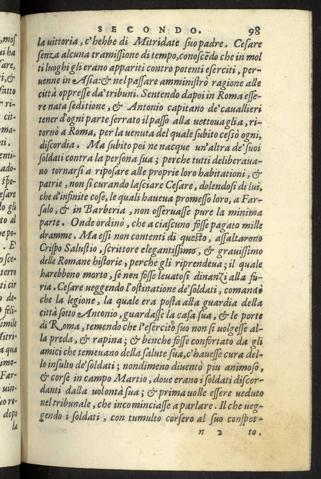 SECONDO. 98
la vittoria, c'hebbe di Mitridate suo padre. Cesare
senza alcuna tramissione di tempo, conoscēdo che in mol
ti luoghi gli erano appariti contro potenti eserciti, per-
uenne in Asia: & nel passare amministrò ragione alle
città oppresse da'tribuni. Sentendo dapoi in Roma esse-
re nata seditione, & Antonio capitano de'cauallieri
tener d'ogni parte serrato il passo alla vettouaglia, ri-
tornò a Roma, per la venuta del quale subito cessò ogni
discordia. Ma subito poi ne nacque un'altra de'suoi
soldati contra la persona sua; perche tutti deliberaua-
no tornarsi a riposare alle proprie loro habitationi, &
patrie, non si curando lasciare Cesare, dolendosi di lui,
che d'infinite cose, le quali haueua promesso loro, a Far-
salo, & in Barberia, non osseruasse pure la minima
parte. Onde ordinò, che a ciascuno fosse pagato mille
dramme. Ma essi non contenti di questo, assaltarono
Crispo Salustio, scrittore elegantissimo, & grauissimo
delle Romane historie, perche gli riprendeua; il quale
harebbono morto, se non fosse leuatosi dinanzi alla fu-
ria. Cesare veggendo l'ostinatione de'soldati, comandò
che la legione, la quale era posta alla guardia della
città sotto Antonio, guardasse la casa sua, & le porte
di Roma, temendo che l'esercito suo non si volgesse al-
la preda, & rapina; & benche fosse confortato da gli
amici che temeuano della salute sua, c'hauesse cura del-
lo insulto de'soldati; nondimeno diuentò piu animoso,
& corse in campo Martio, doue erano i soldati discor-
danti dalla volontà sua; & prima volle essere veduto
nel tribunale, che incominciasse a parlare. Il che veg-
gendo i soldati, con tumulto corsero al suo conspet-
n 2 to,